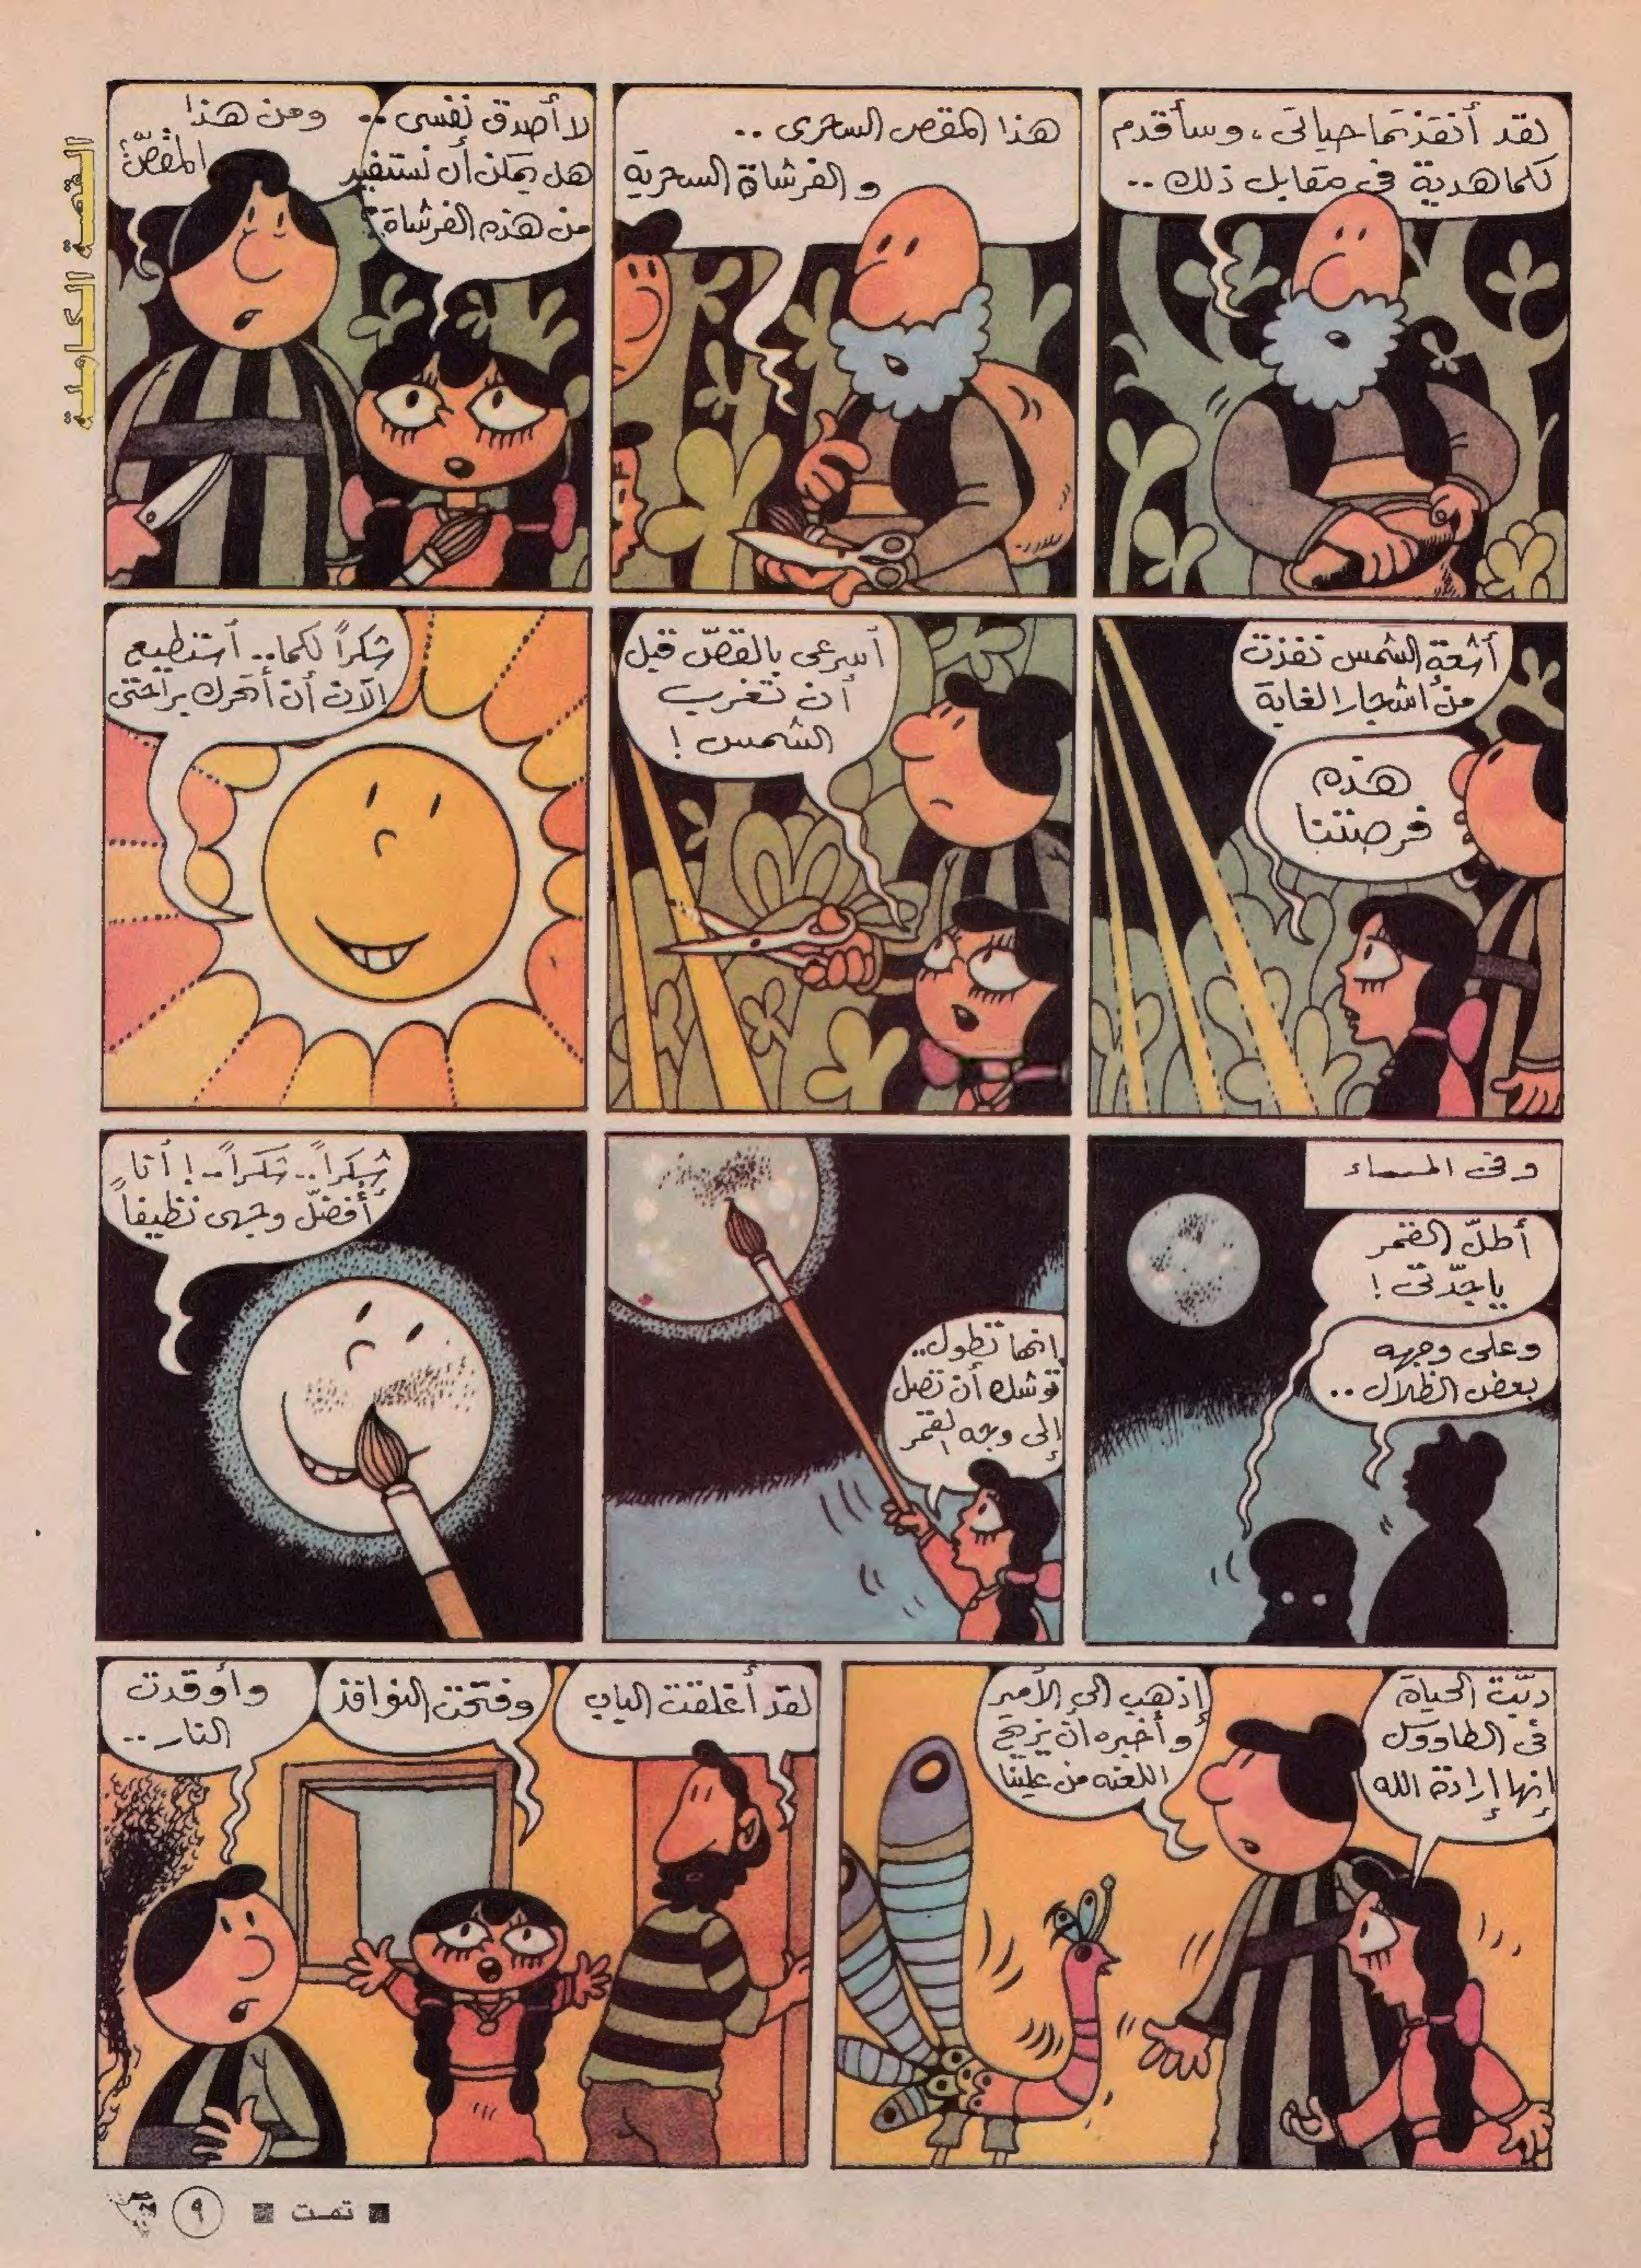 القصة الكاملة
لقد أنقذتما حياتى، وسأقدم
لكما هدية فى مقابل ذلك..
هذا المقص السحرى ..
والفرشاة السحرية
لا أصدق نفسى ..
هل يمكن أن نستفيد
من هذه الفرشاة؟
ومن هذا
المقصّ؟
أشعة الشمس نفذت
من أشجار الغابة
هذه
فرصتنا
أسرعى بالقصّ قبل
أن تغرب
الشمس !
شكراً لكما.. أستطيع
الآن أن أتحرك براحتى
وفى المساء
أطلّ القمر
ياجدّتى !
وعلى وجهه
بعض الظلال ..
إنها تطول..
توشك أن تصل
إلى وجه القمر
شكراً.. شكراً..! أنا
أفضّل وجهى نظيفاً
دبّت الحياة
فى الطاووس
إنها إرادة الله
إذهب إلى الأمير
وأخبره أن يزيح
اللعنه من علينا
لقد أغلقت الباب
وفتحت النوافذ
وأوقدت
النار ..
■ تمت ■
٩